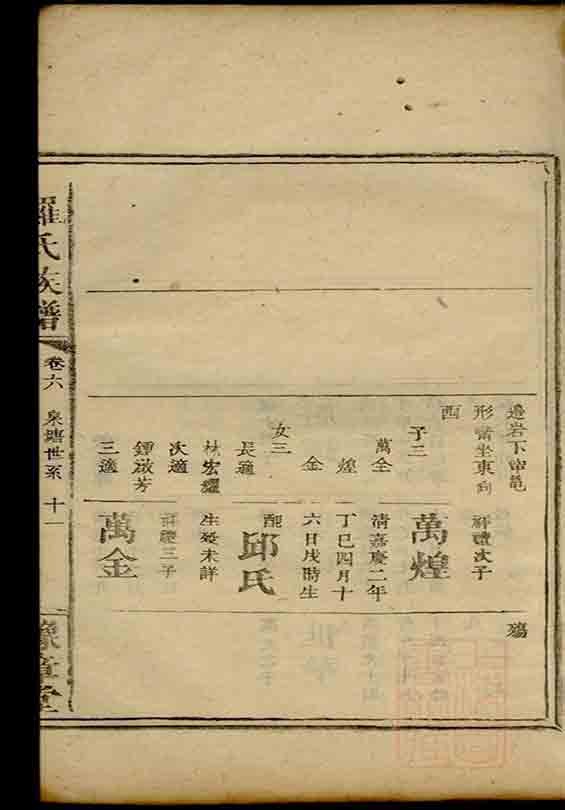 邊岩下申苞
形酉坐東向
西
子三
萬全
煌
金
女三
長適
林宏耀
次適
鍾啟芳
三適
祥禮次子
萬煌
清嘉慶二年
丁巳四月十
六日戌時生
配
邱氏
生殁未詳
祥禮三子
萬金
殤
羅氏族譜
卷六
泉塘世系
十一
豫章堂